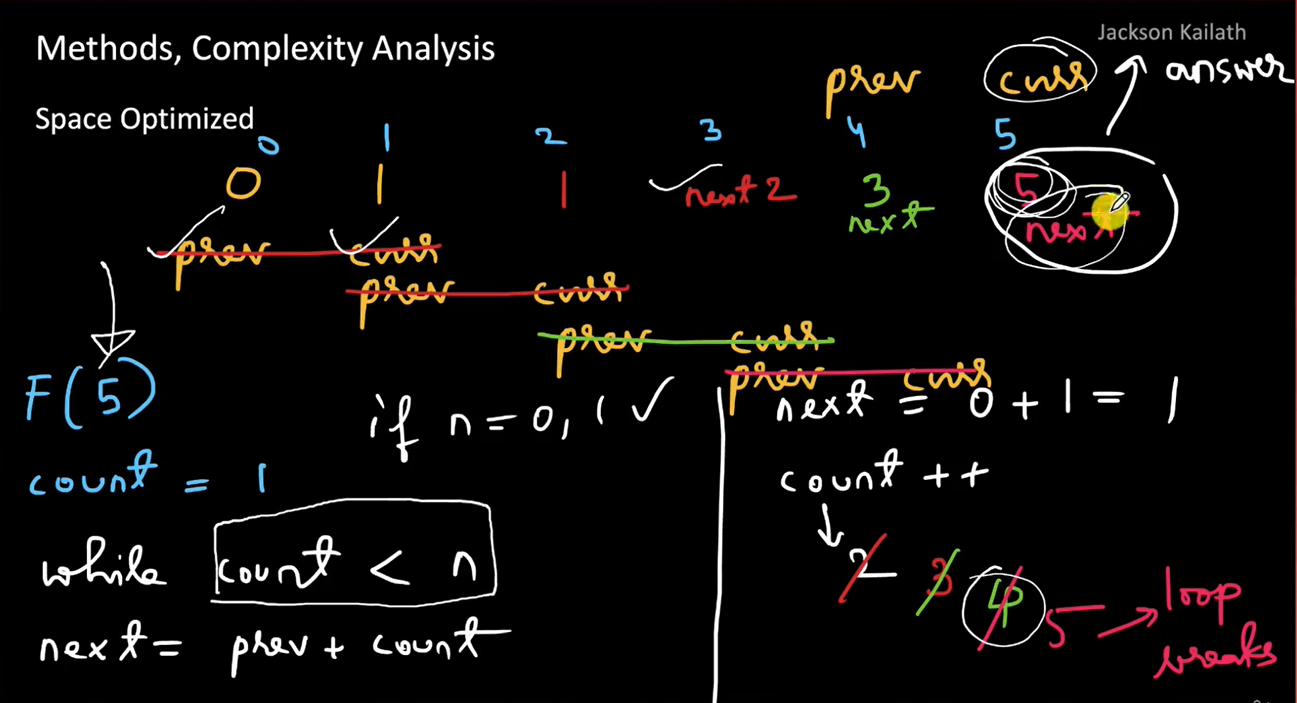 Methods, Complexity Analysis
Jackson Kailath
prev curr answer
Space Optimized
0 1 2 3 4 5
0 1 1 next 2 3 5
next next
prev curr
prev curr
prev curr
prev curr
F(5)
if n = 0, 1 ✓
count = 1
while count < n
next = prev + count
next = 0 + 1 = 1
count ++
2 3 4 5 → loop
breaks